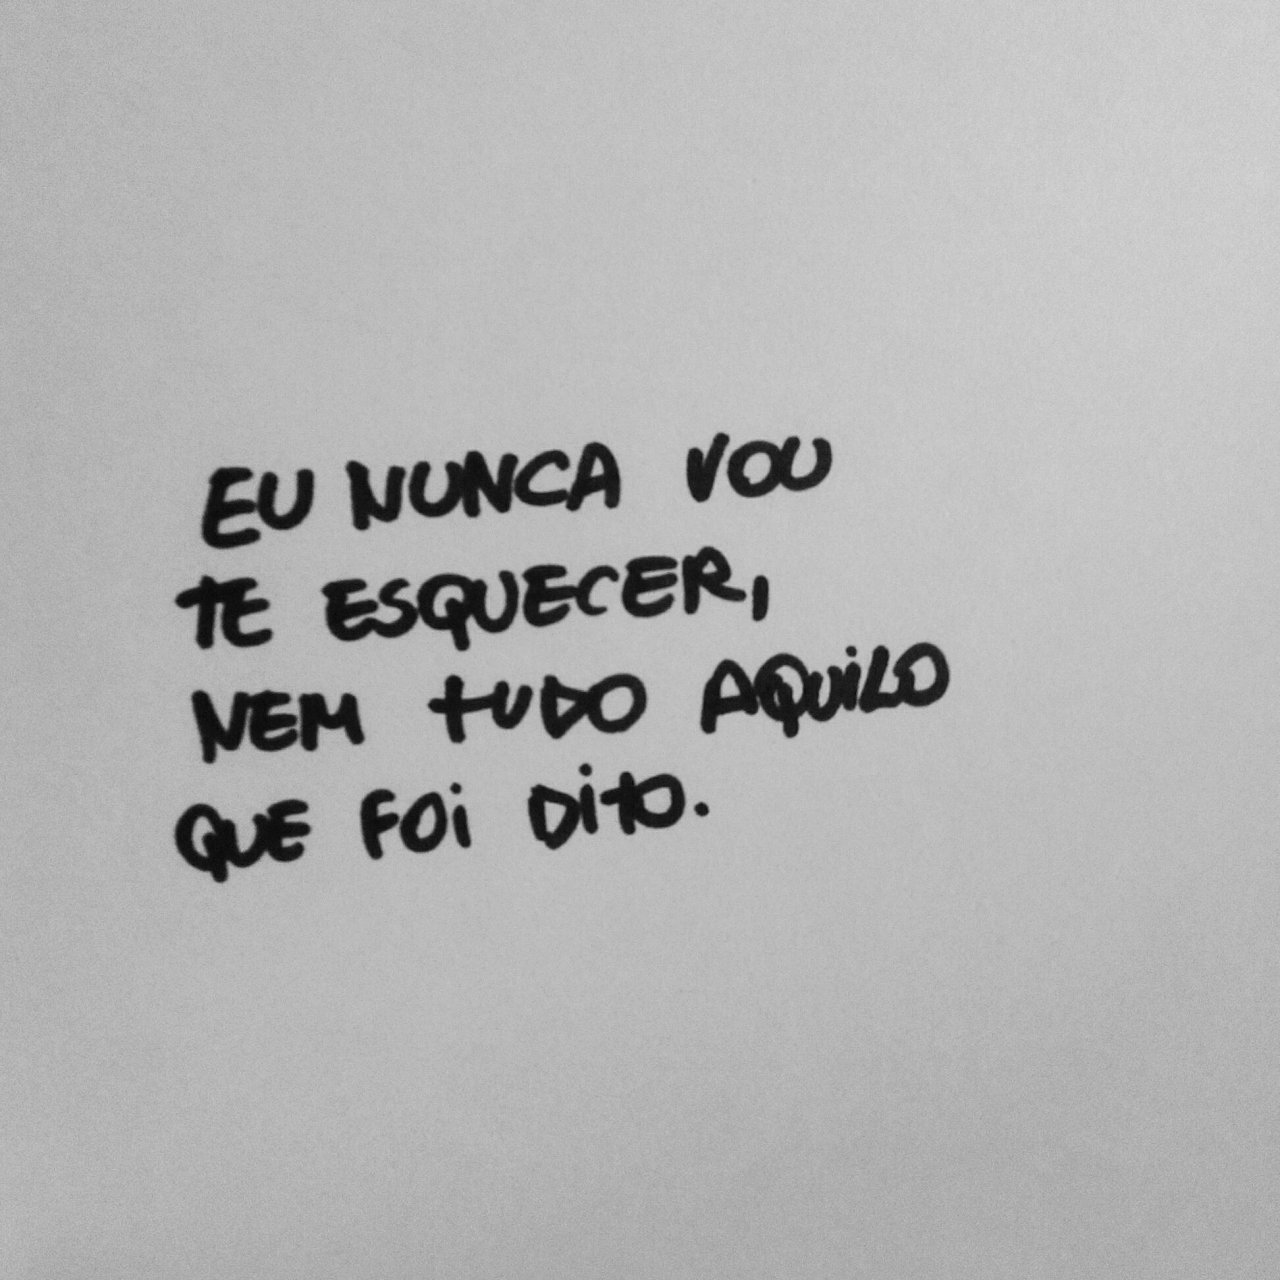 EU NUNCA VOU
TE ESQUECER,
NEM TUDO AQUiLO
QUE FOi DiTO.